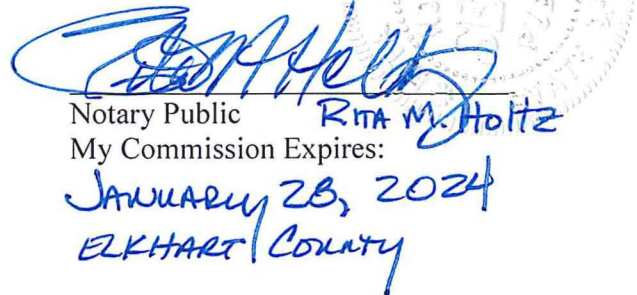 Rita M Holtz
Notary Public RITA M. HOLTZ
My Commission Expires:
JANUARY 28, 2024
ELKHART COUNTY